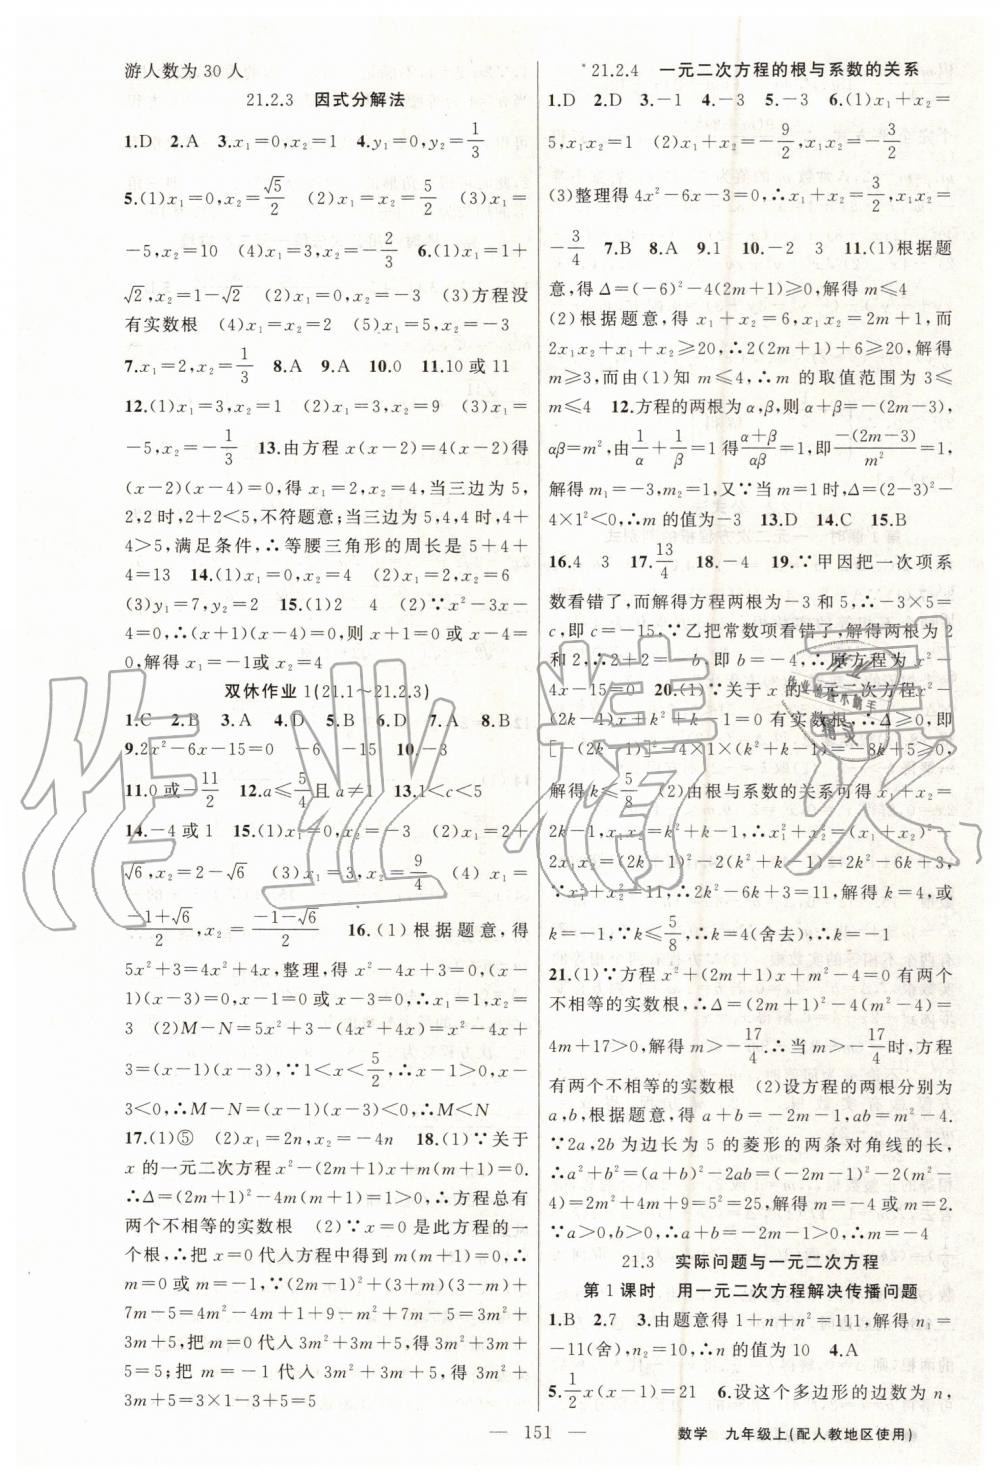 游人数为30人
21.2.3 因式分解法
1.D 2.A 3.x₁=0,x₂=1 4.y₁=0,y₂=1/3
5.(1)x₁=0,x₂=√5/2 (2)x₁=0,x₂=5/2 (3)x₁=
-5,x₂=10 (4)x₁=3,x₂=-2/3 6.(1)x₁=1+
√2,x₂=1-√2 (2)x₁=0,x₂=-3 (3)方程没
有实数根 (4)x₁=x₂=2 (5)x₁=5,x₂=-3
7.x₁=2,x₂=1/3 8.A 9.A 10.0 11.10或11
12.(1)x₁=3,x₂=1 (2)x₁=3,x₂=9 (3)x₁=
-5,x₂=-1/3 13.由方程x(x-2)=4(x-2)得
(x-2)(x-4)=0,得x₁=2,x₂=4,当三边为5,
2,2时,2+2<5,不符题意;当三边为5,4,4时,4+
4>5,满足条件,∴等腰三角形的周长是5+4+
4=13 14.(1)x₁=0,x₂=4 (2)x₁=2,x₂=6
(3)y₁=7,y₂=2 15.(1)2 4 (2)∵x²-3x-
4=0,∴(x+1)(x-4)=0,则x+1=0或x-4=
0,解得x₁=-1或x₂=4
双休作业1(21.1~21.2.3)
1.C 2.B 3.A 4.D 5.B 6.D 7.A 8.B
9.2x²-6x-15=0 -6 -15 10.-3
11.0或-11/2 12.a≤5/4且a≠1 13.1<c<5
14.-4或1 15.(1)x₁=0,x₂=-3 (2)x₁=2+
√6,x₂=2-√6 (3)x₁=3,x₂=9/4 (4)x₁=
(-1+√6)/2,x₂=(-1-√6)/2 16.(1)根据题意,得
5x²+3=4x²+4x,整理,得x²-4x+3=0,∴(x-
1)(x-3)=0,x-1=0或x-3=0,∴x₁=1,x₂=
3 (2)M-N=5x²+3-(4x²+4x)=x²-4x+
3=(x-1)(x-3),∵1<x<5/2,∴x-1>0,x-
3<0,∴M-N=(x-1)(x-3)<0,∴M<N
17.(1)⑤ (2)x₁=2n,x₂=-4n 18.(1)∵关于
x的一元二次方程x²-(2m+1)x+m(m+1)=0.
∴Δ=(2m+1)²-4m(m+1)=1>0,∴方程总有
两个不相等的实数根 (2)∵x=0是此方程的一
个根,∴把x=0代入方程中得到m(m+1)=0,∴
m=0或m=-1,∵(2m-1)²+(3+m)(3-m)+
7m-5=4m²-4m+1+9-m²+7m-5=3m²+
3m+5,把m=0代入3m²+3m+5,得3m²+3m+
5=5;把m=-1代入3m²+3m+5,得3m²+
3m+5=3×1-3+5=5
21.2.4 一元二次方程的根与系数的关系
1.D 2.D 3.-1 4.-3 5.-3 6.(1)x₁+x₂=
5,x₁x₂=1 (2)x₁+x₂=-9/2,x₁x₂=-3/2
(3)整理得4x²-6x-3=0,∴x₁+x₂=3/2,x₁x₂=
-3/4 7.B 8.A 9.1 10.-2 3 11.(1)根据题
意,得Δ=(-6)²-4(2m+1)≥0,解得m≤4
(2)根据题意,得x₁+x₂=6,x₁x₂=2m+1,而
2x₁x₂+x₁+x₂≥20,∴2(2m+1)+6≥20,解得
m≥3,而由(1)知m≤4,∴m的取值范围为3≤
m≤4 12.方程的两根为α,β,则α+β=-(2m-3),
αβ=m²,由1/α+1/β=1得(α+β)/αβ=1,即-(2m-3)/m²=1,
解得m₁=-3,m₂=1,又∵当m=1时,Δ=(2-3)²-
4×1²<0,∴m的值为-3 13.D 14.C 15.B
16.4 3 17.13/4 18.-4 19.∵甲因把一次项系
数看错了,而解得方程两根为-3和5,∴-3×5=
c,即c=-15,∵乙把常数项看错了,解得两根为2
和2,∴2+2=-b,即b=-4,∴原方程为x²-
4x-15=0 20.(1)∵关于x的一元二次方程x²-
(2k-1)x+k²+k-1=0有实数根,∴Δ≥0,即
[-(2k-1)]²-4×1×(k²+k-1)=-8k+5≥0,
解得k≤5/8 (2)由根与系数的关系可得x₁+x₂=
2k-1,x₁x₂=k²+k-1,∴x₁²+x₂²=(x₁+x₂)²-
2x₁x₂=(2k-1)²-2(k²+k-1)=2k²-6k+3,
∵x₁²+x₂²=11,∴2k²-6k+3=11,解得k=4,或
k=-1,∵k≤5/8,∴k=4(舍去),∴k=-1
21.(1)∵方程x²+(2m+1)x+m²-4=0有两个
不相等的实数根,∴Δ=(2m+1)²-4(m²-4)=
4m+17>0,解得m>-17/4.∴当m>-17/4时,方程
有两个不相等的实数根 (2)设方程的两根分别为
a,b,根据题意,得a+b=-2m-1,ab=m²-4.
∵2a,2b为边长为5的菱形的两条对角线的长,
∴a²+b²=(a+b)²-2ab=(-2m-1)²-2(m²-
4)=2m²+4m+9=5²=25,解得m=-4或m=2.
∵a>0,b>0,∴a+b=-2m-1>0,∴m=-4
21.3 实际问题与一元二次方程
第1课时 用一元二次方程解决传播问题
1.B 2.7 3.由题意得1+n+n²=111,解得n₁=
-11(舍),n₂=10,∴n的值为10 4.A
5.1/2x(x-1)=21 6.设这个多边形的边数为n,
— 151 —
数学 九年级上(配人教地区使用)
作业精灵